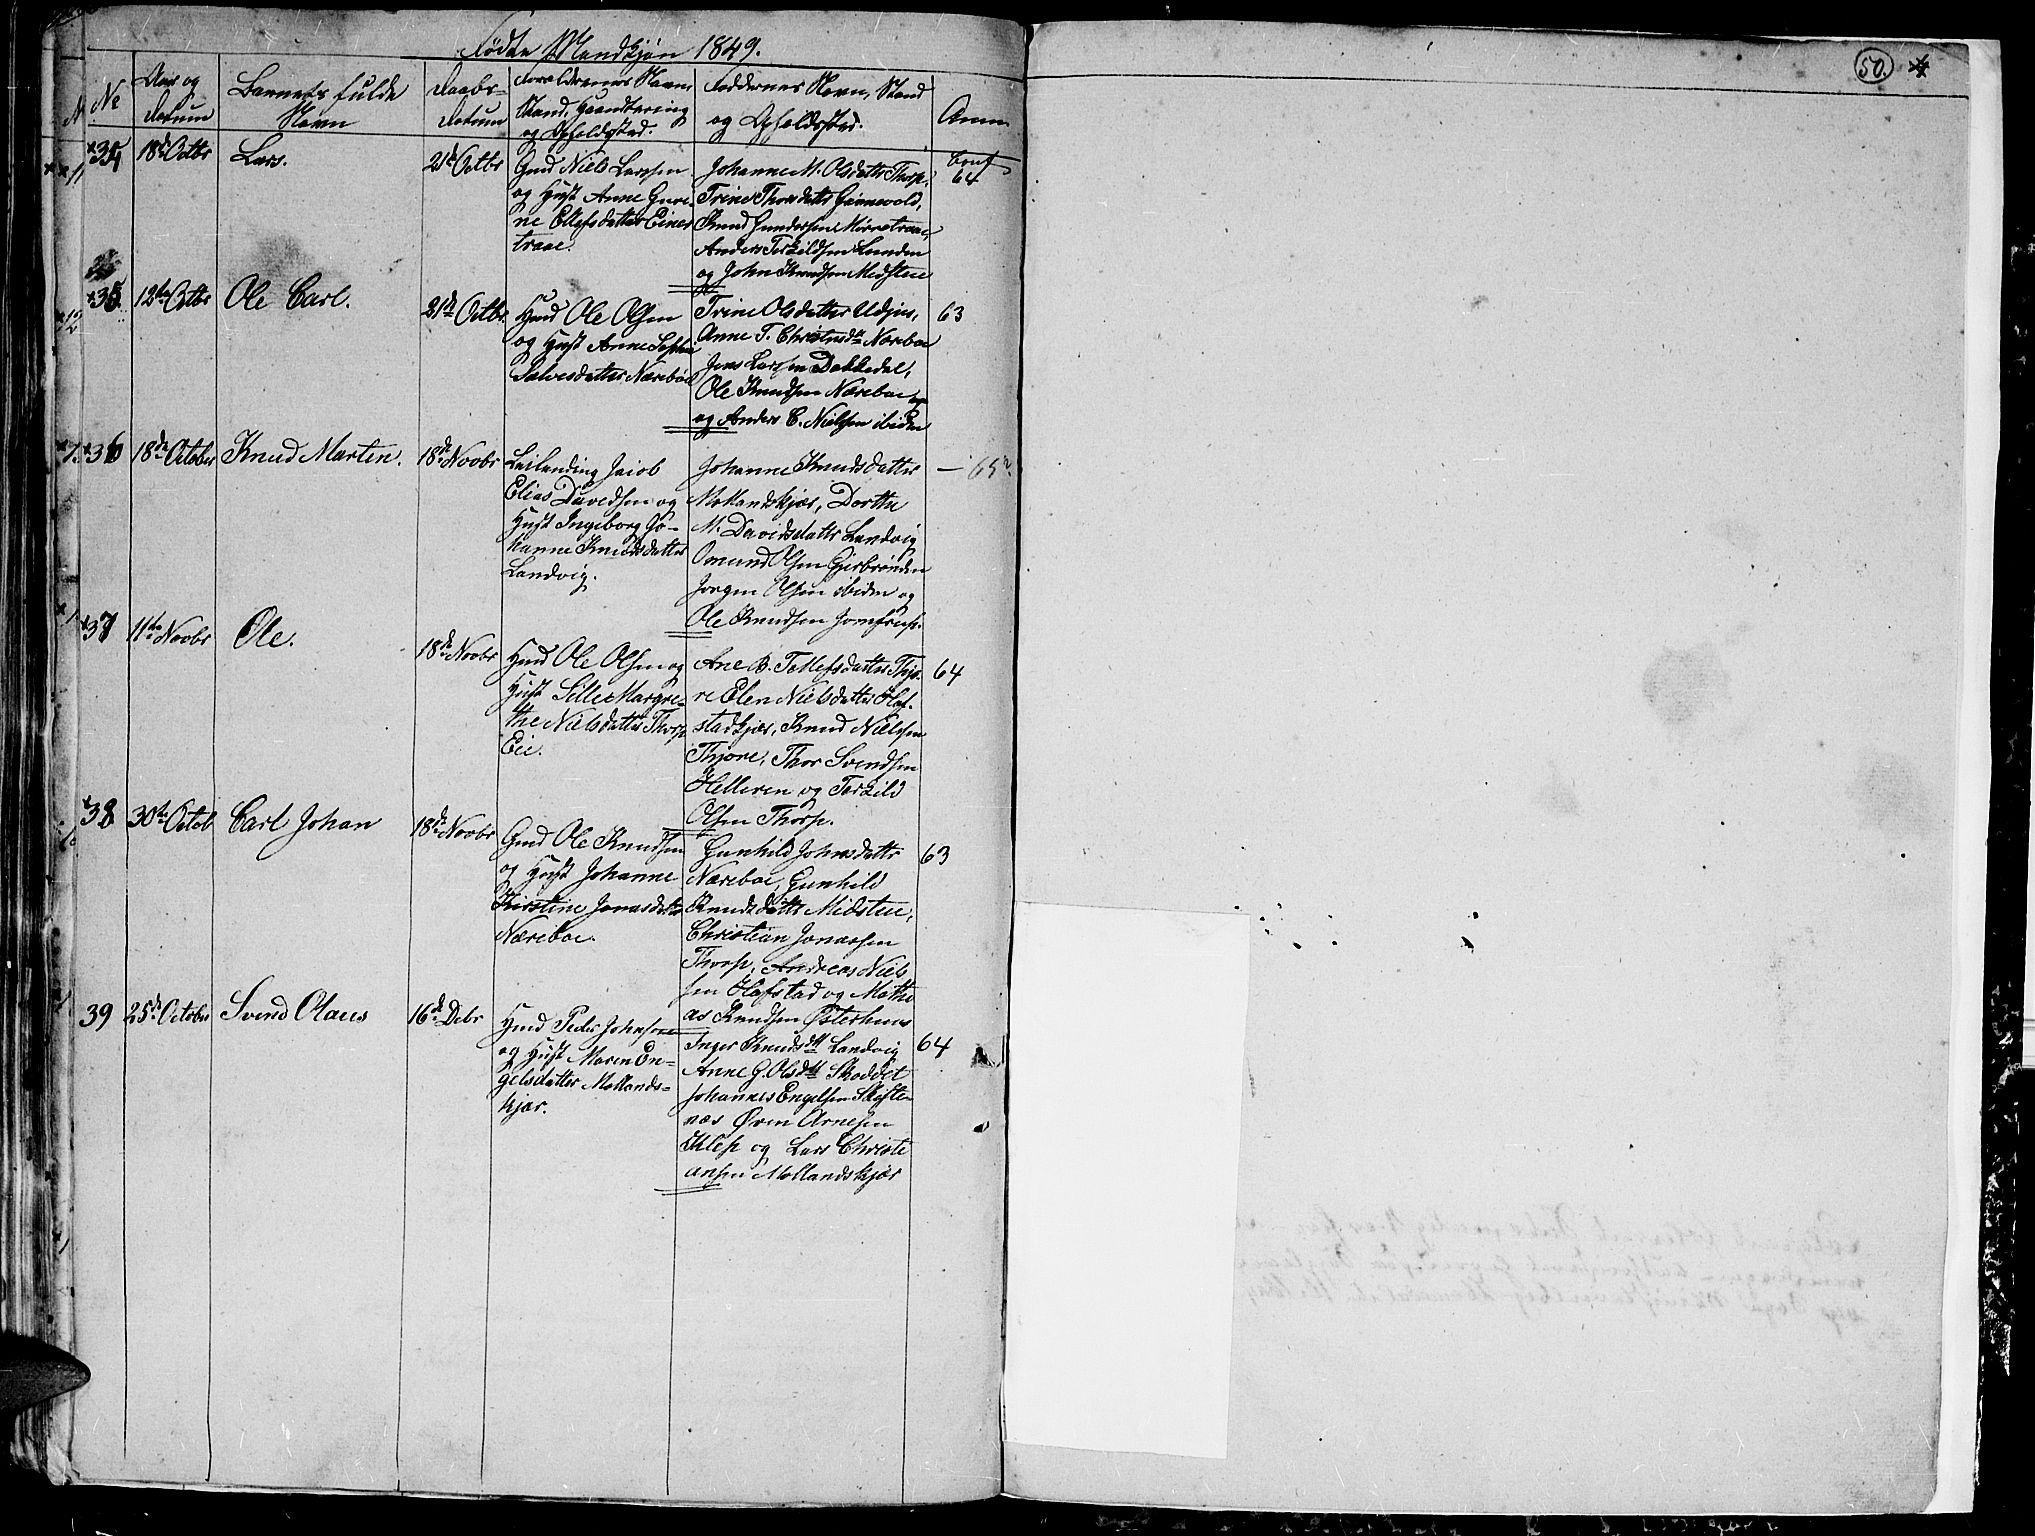 Fødte Mandkjøn 1849.
No
Aar og Datum
Barnets fulde Navn
Daabs-Datum
Forældrenes Navn, Stand, Haandtering og Opholdssted.
Faddernes Navn, Stand og Opholdssted.
Anm
34
18de Octbr
Lars.
21de Octbr
Gmd Niels Larssen
og Hust Anne Guri-
ne Ellefsdatter Eines
traae.
Johanne M. Olsdatter Thorp,
Trine Thorsdatter Grimevold,
Knud Gundersen Mørretraae,
Anders Terkildsen Lunden
og John Knudsen Midstue
Conf
64
35
12te Octbr
Ole Carl.
21de Octbr
Hmd Ole Olsen
og Hust Anne Sophie
Salvesdatter Nærebøe
Trine Olsdatter Udjus,
Anne T. Christnsdtr Nærebøe
Jens Larssen Dakkedal,
Ole Knudsen Nærebøe
og Anders C. Nielsen ibiden
63
36
18de October
Knud Marten.
18de Novbr
Leilending Jacob
Elias Davedsen og
Hust Ingeborg Jo-
hanne Knudsdatter
Landvig.
Johanne Knudsdatter
Mollandskjær, Dorthe
M. Davidsdatter Landvig
Omund Olsen Gjerbrønden
Jørgen Olsen ibiden og
Ole Knudsen Jomfrup.
- 65
37
11te Novbr
Ole.
18de Novbr
Hmd Ole Olsen og
Hust Sille Margre-
the Nielsdatter Thorp
Eie.
Ane B. Tellefsdatter Thjo-
re Elen Nielsdatter Haf-
stadkjær, Knud Nielsen
Thjore, Thor Svendsen
Helleren og Terkild
Olsen Thorp.
64
38
30te Octob
Carl Johan
18de Novbr
Gmd Ole Knudsen
og Hust Johanne
Kirstine Jonasdatter
Nærebøe.
Gunhild Johnsdatter
Nærebøe, Gunhild
Knudsdatter Midstue,
Christian Jonassen
Thorp, Andreas Niel-
sen Hafstad og Mathi
as Knudsen Østerhuus
63
39
25de October
Svend Olaus
16de Debr
Hmd Peder Johnsen
og Hust Maren En-
gelsdatter Mollands-
kjær.
Inger Knudsdtt Landvig
Anne G. Olsdtt Skoddet
Johannes Engelsen Skifte-
næs Øven Arnesen
Klep og Lars Christi
ansen Mollandskjær
64
50.